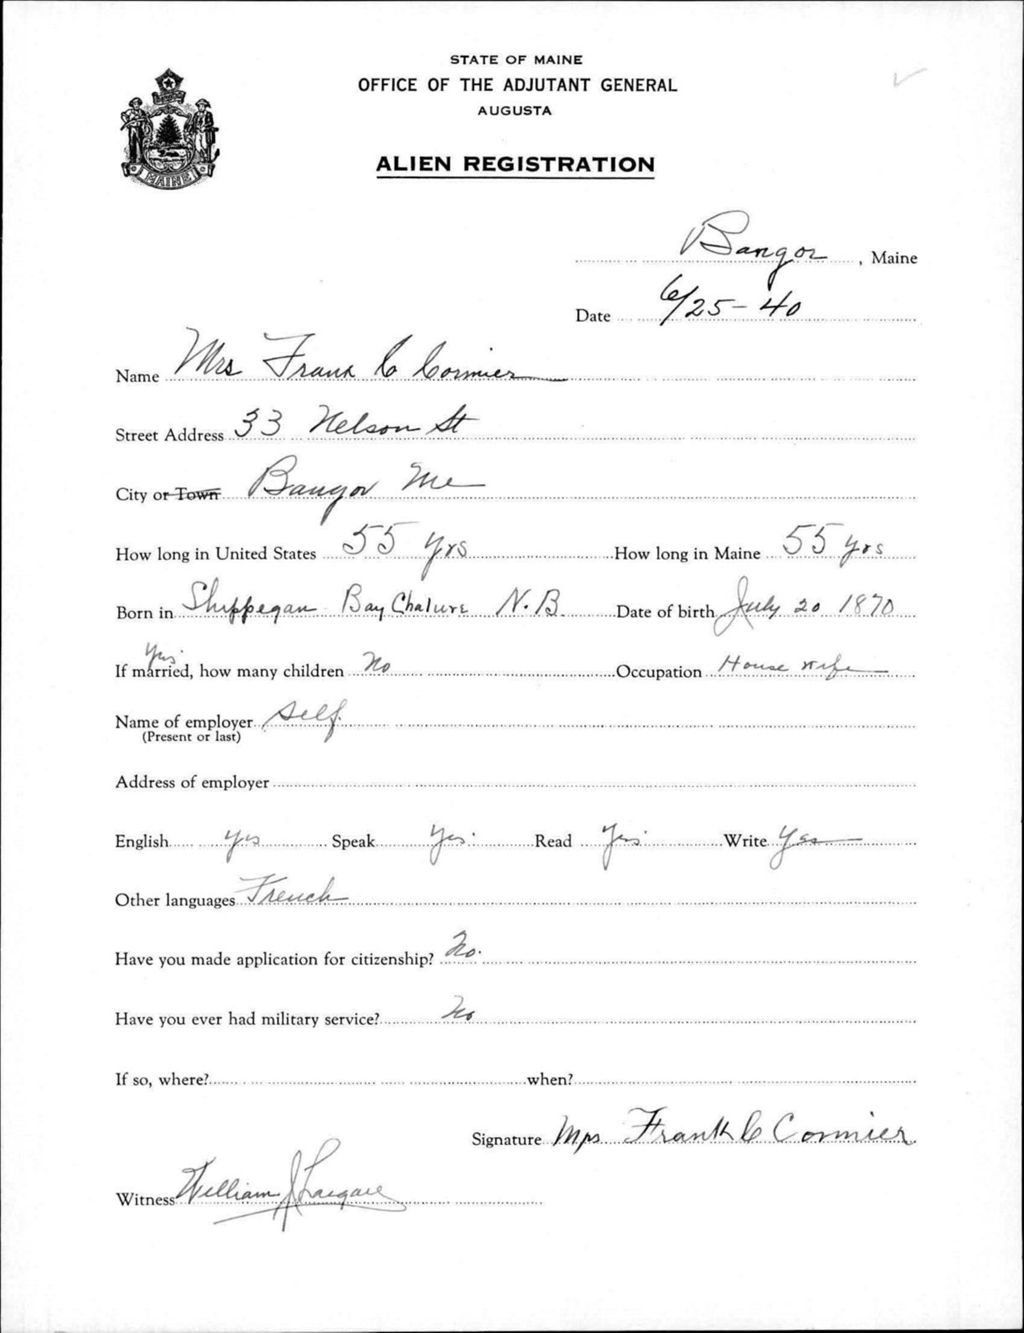 STATE OF MAINE
OFFICE OF THE ADJUTANT GENERAL
AUGUSTA
ALIEN REGISTRATION
MAINE
Bangor, Maine
Date 6/25-40
Name Mrs Frank C Cormier
Street Address 33 Nelson St
City or Town Bangor Me
How long in United States 55 yrs How long in Maine 55 yrs
Born in Shippegan Bay Chalure N.B. Date of birth July 20 1870
Yes
If married, how many children No Occupation House wife
Name of employer Self.
(Present or last)
Address of employer
English yes Speak Yes. Read Yes. Write Yes
Other languages French
Have you made application for citizenship? No.
Have you ever had military service? No
If so, where? when?
Signature Mrs Frank C Cormier
Witness William J